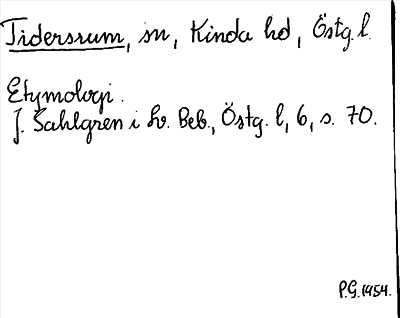 Tidersrum, sn, Kinda hd, Östg. l.
Etymologi.
J. Sahlgren i Sv. Beb., Östg. l, 6, s. 70.
P.G. 1954.